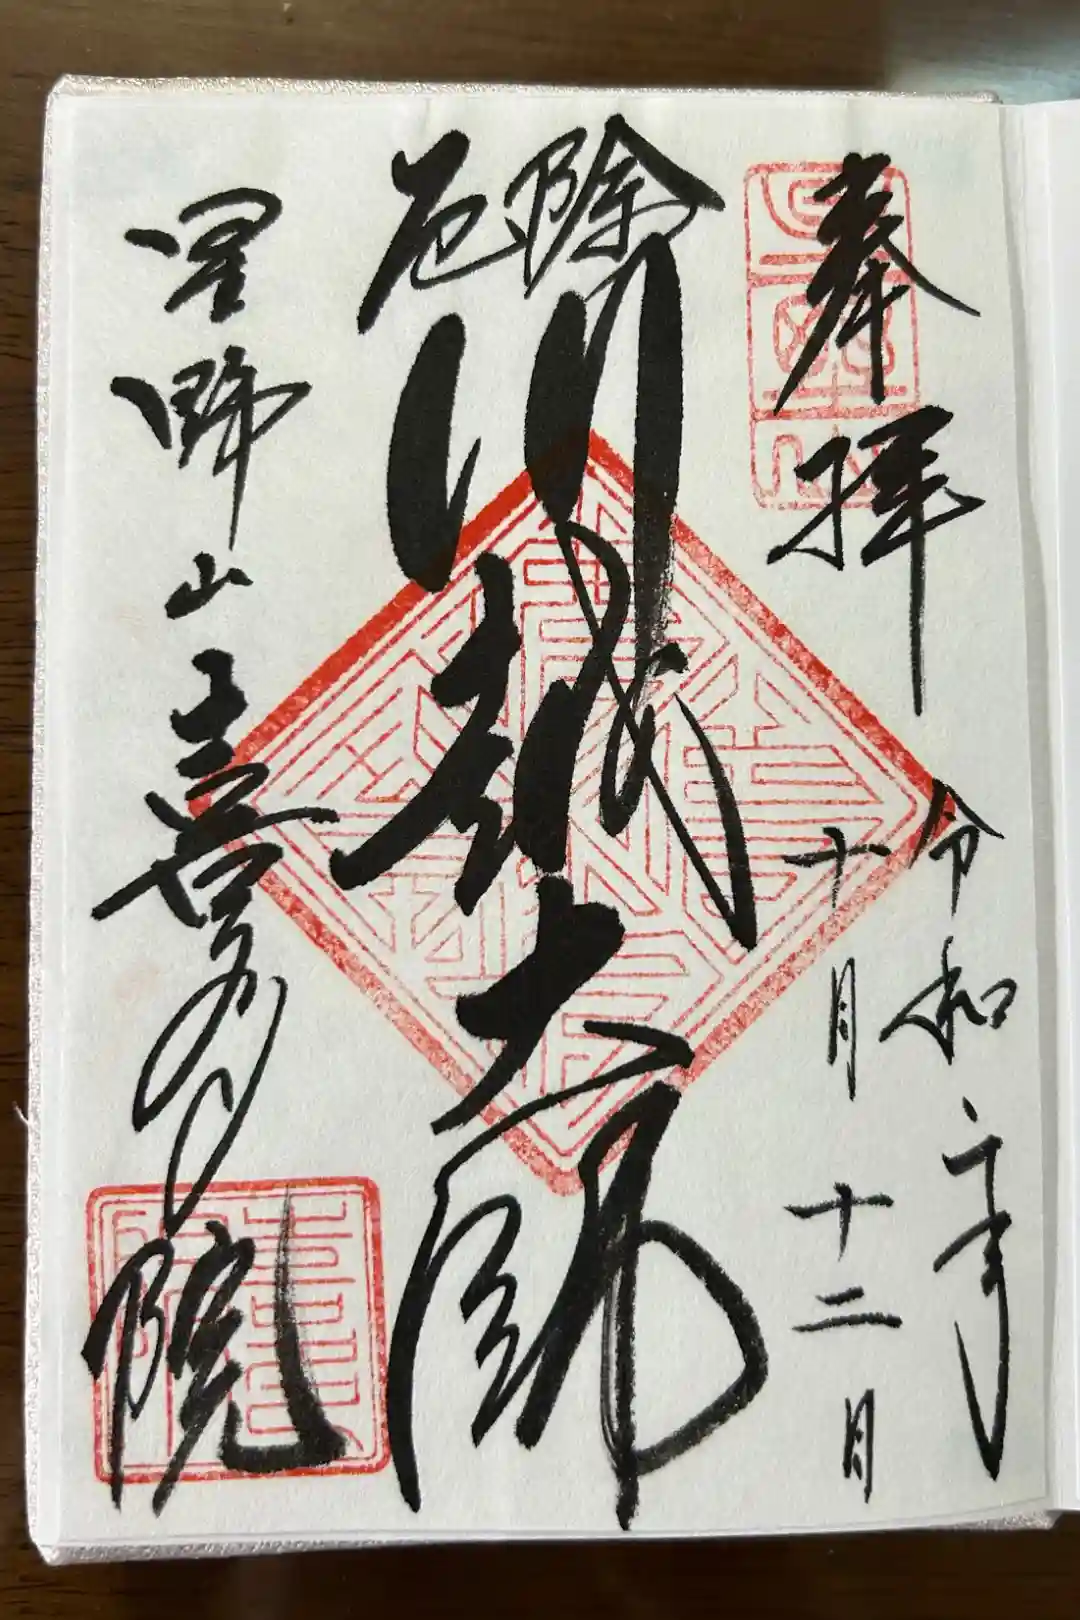 奉拝
令和年
十月十二日
厄除
川越大師
星野山喜多院